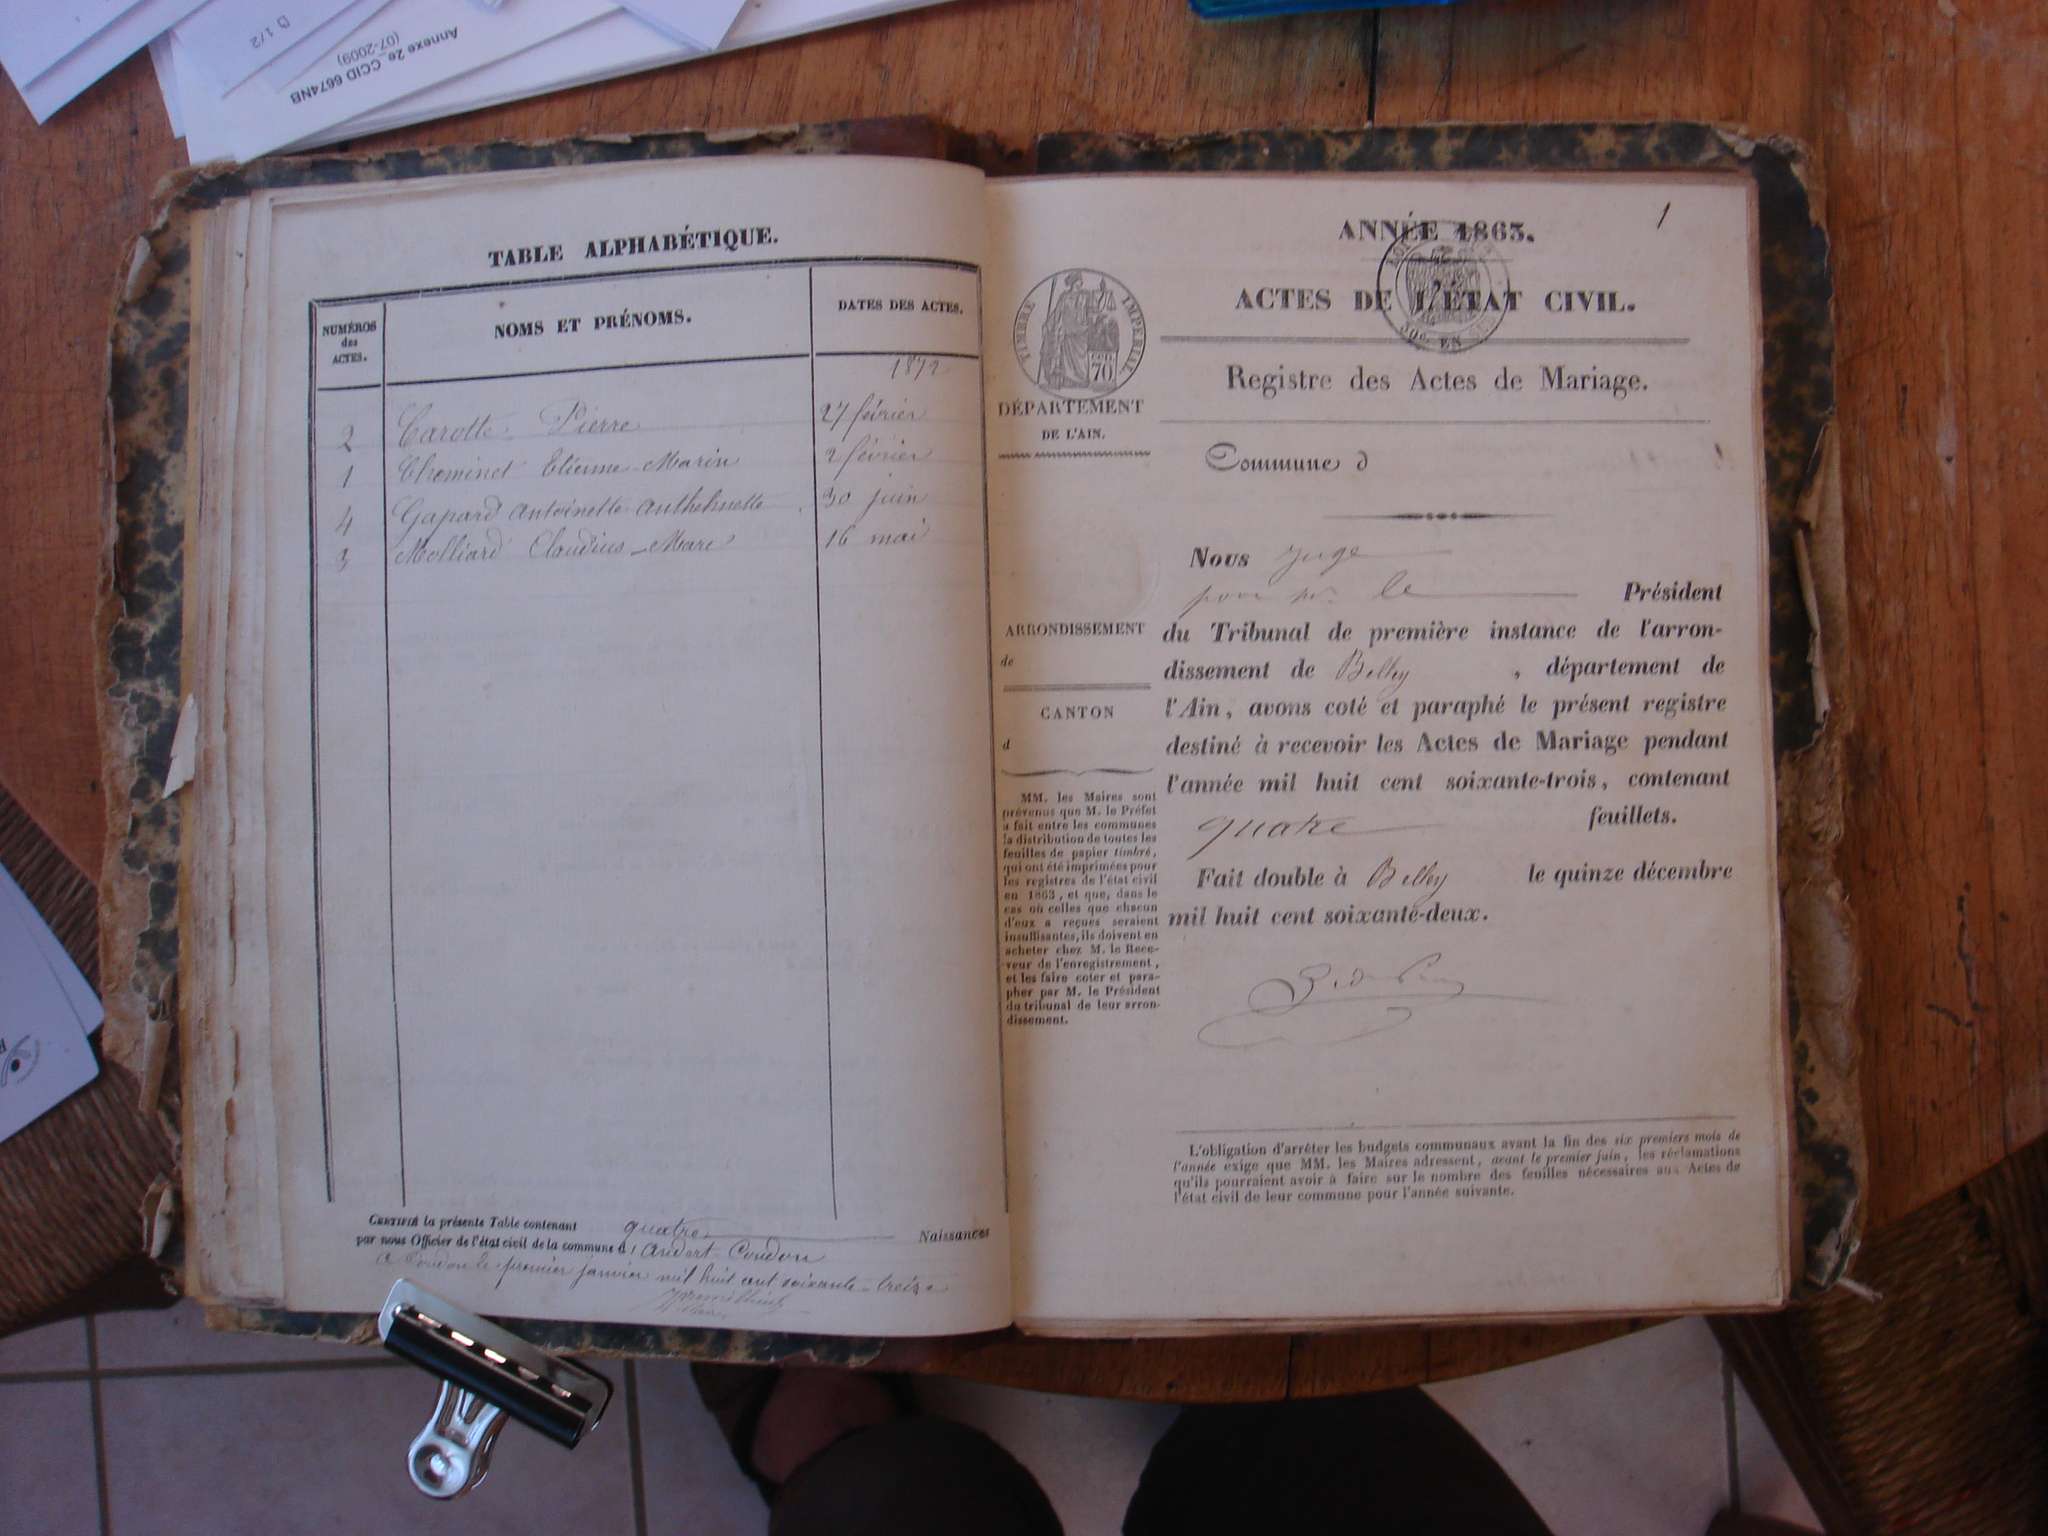 D 1/2
Annexe 2e_CCID 6674NB
(07-2009)
TABLE ALPHABÉTIQUE.
NUMÉROS des ACTES.
NOMS ET PRÉNOMS.
DATES DES ACTES.
1872
2 Carotte Pierre 27 février
1 Cheminet Etienne-Marin 2 février
4 Gapard Antoinette 30 juin
3 Molliard Claudius-Marc 16 mai
CERTIFIÉ la présente Table contenant quatre Naissances
par nous Officier de l'état civil de la commune d' Andert-Condon
A Condon le premier janvier mil huit cent soixante-treize
1
ANNÉE 1863.
ACTES DE L'ÉTAT CIVIL.
Registre des Actes de Mariage.
TIMBRE IMPERIAL
70
DÉPARTEMENT
DE L'AIN.
Commune d
ARRONDISSEMENT
de
CANTON
d
MM. les Maires sont
prévenus que M. le Préfet
a fait entre les communes
la distribution de toutes les
feuilles de papier timbré,
qui ont été imprimées pour
les registres de l'état civil
en 1863, et que, dans le
cas où celles que chacun
d'eux a reçues seraient
insuffisantes, ils doivent en
acheter chez M. le Rece-
veur de l'enregistrement,
et les faire coter et para-
pher par M. le Président
du tribunal de leur arron-
dissement.
Nous Juge
pour Mr. le Président
du Tribunal de première instance de l'arron-
dissement de Belley, département de
l'Ain, avons coté et paraphé le présent registre
destiné à recevoir les Actes de Mariage pendant
l'année mil huit cent soixante-trois, contenant
quatre feuillets.
Fait double à Belley le quinze décembre
mil huit cent soixante-deux.
L'obligation d'arrêter les budgets communaux avant la fin des six premiers mois de
l'année exige que MM. les Maires adressent, avant le premier juin, les réclamations
qu'ils pourraient avoir à faire sur le nombre des feuilles nécessaires aux Actes de
l'état civil de leur commune pour l'année suivante.